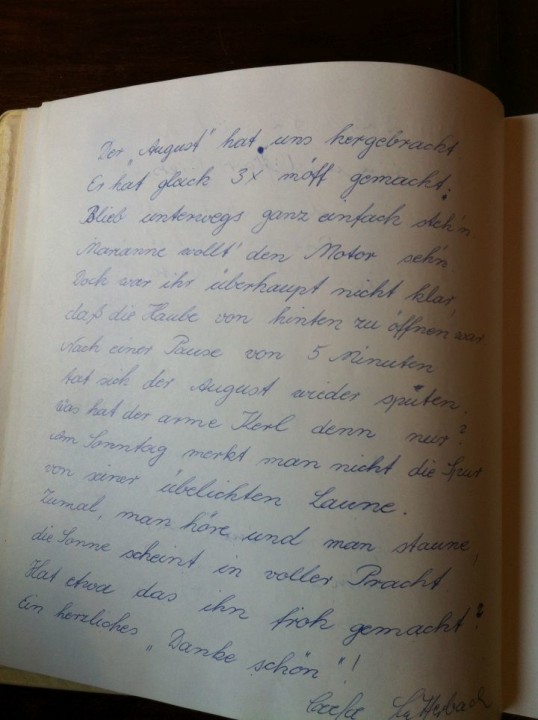 Der „August" hat uns hergebracht.
Er hat gleich 3x möff gemacht.
Blieb unterwegs ganz einfach steh'n
Marianne wollt' den Motor seh'n
Doch war ihr überhaupt nicht klar,
daß die Haube von hinten zu öffnen war
Nach einer Pause von 5 Minuten
tat sich der August wieder sputen.
Was hat der arme Kerl denn nur?
Am Sonntag merkt man nicht die Spur
von seiner übelichten Laune.
Zumal, man höre und man staune,
die Sonne scheint in voller Pracht.
Hat etwa das ihn froh gemacht?
Ein herzliches „Danke schön"!